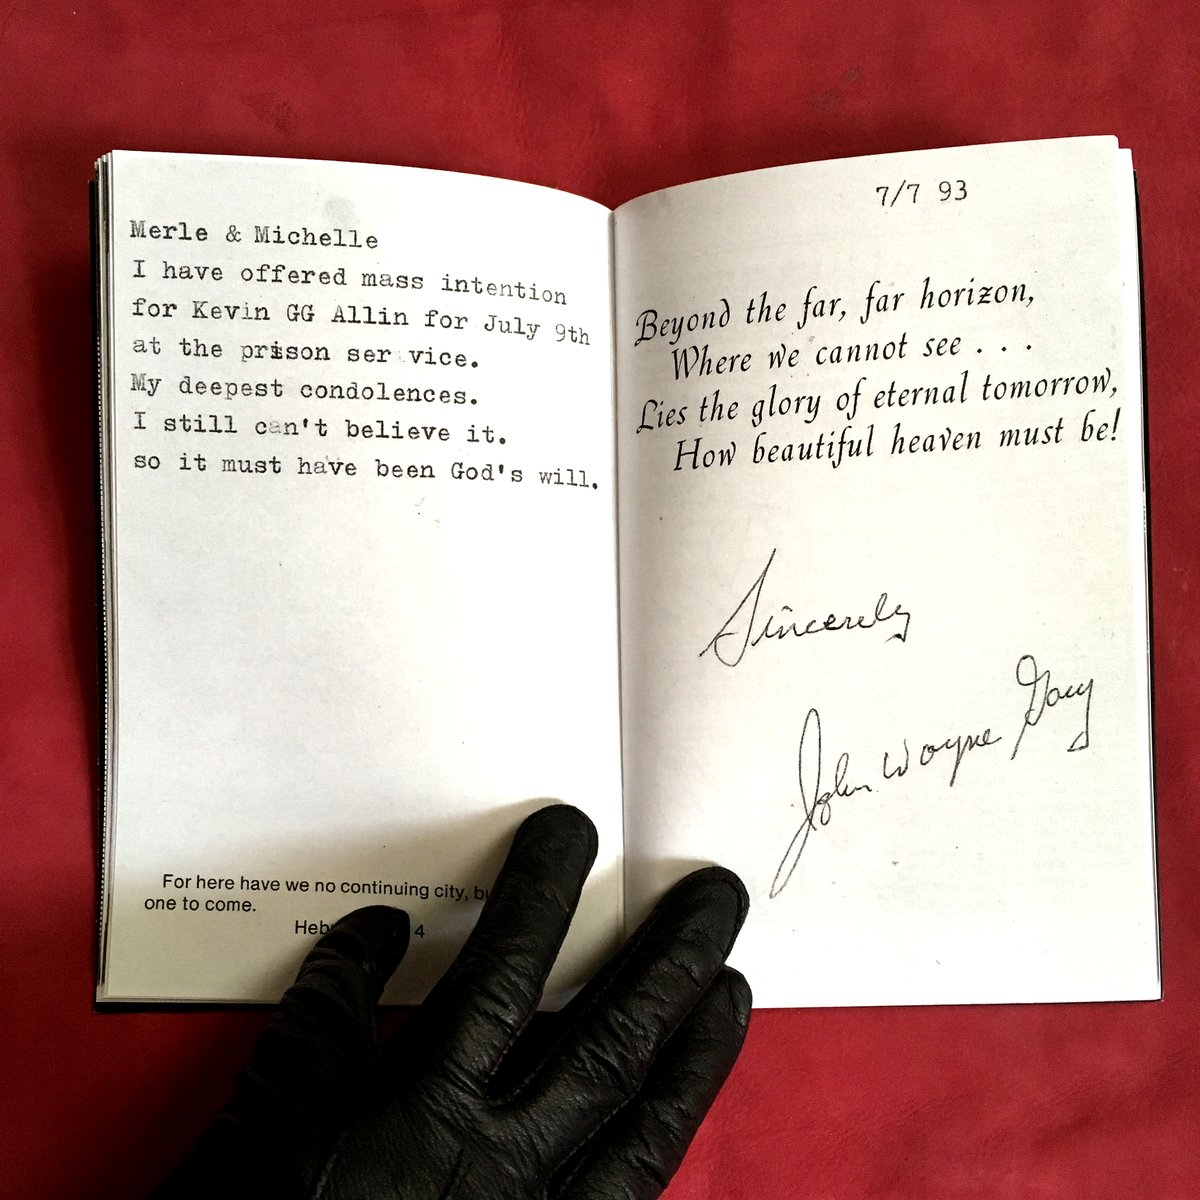 Merle & Michelle
I have offered mass intention
for Kevin GG Allin for July 9th
at the prison ser vice.
My deepest condolences.
I still can't believe it.
so it must have been God's will.
For here have we no continuing city,
one to come.
4
7/7 93
Beyond the far, far horizon,
Where we cannot see . . .
Lies the glory of eternal tomorrow,
How beautiful heaven must be!
Sincerely
John Wayne Gacy